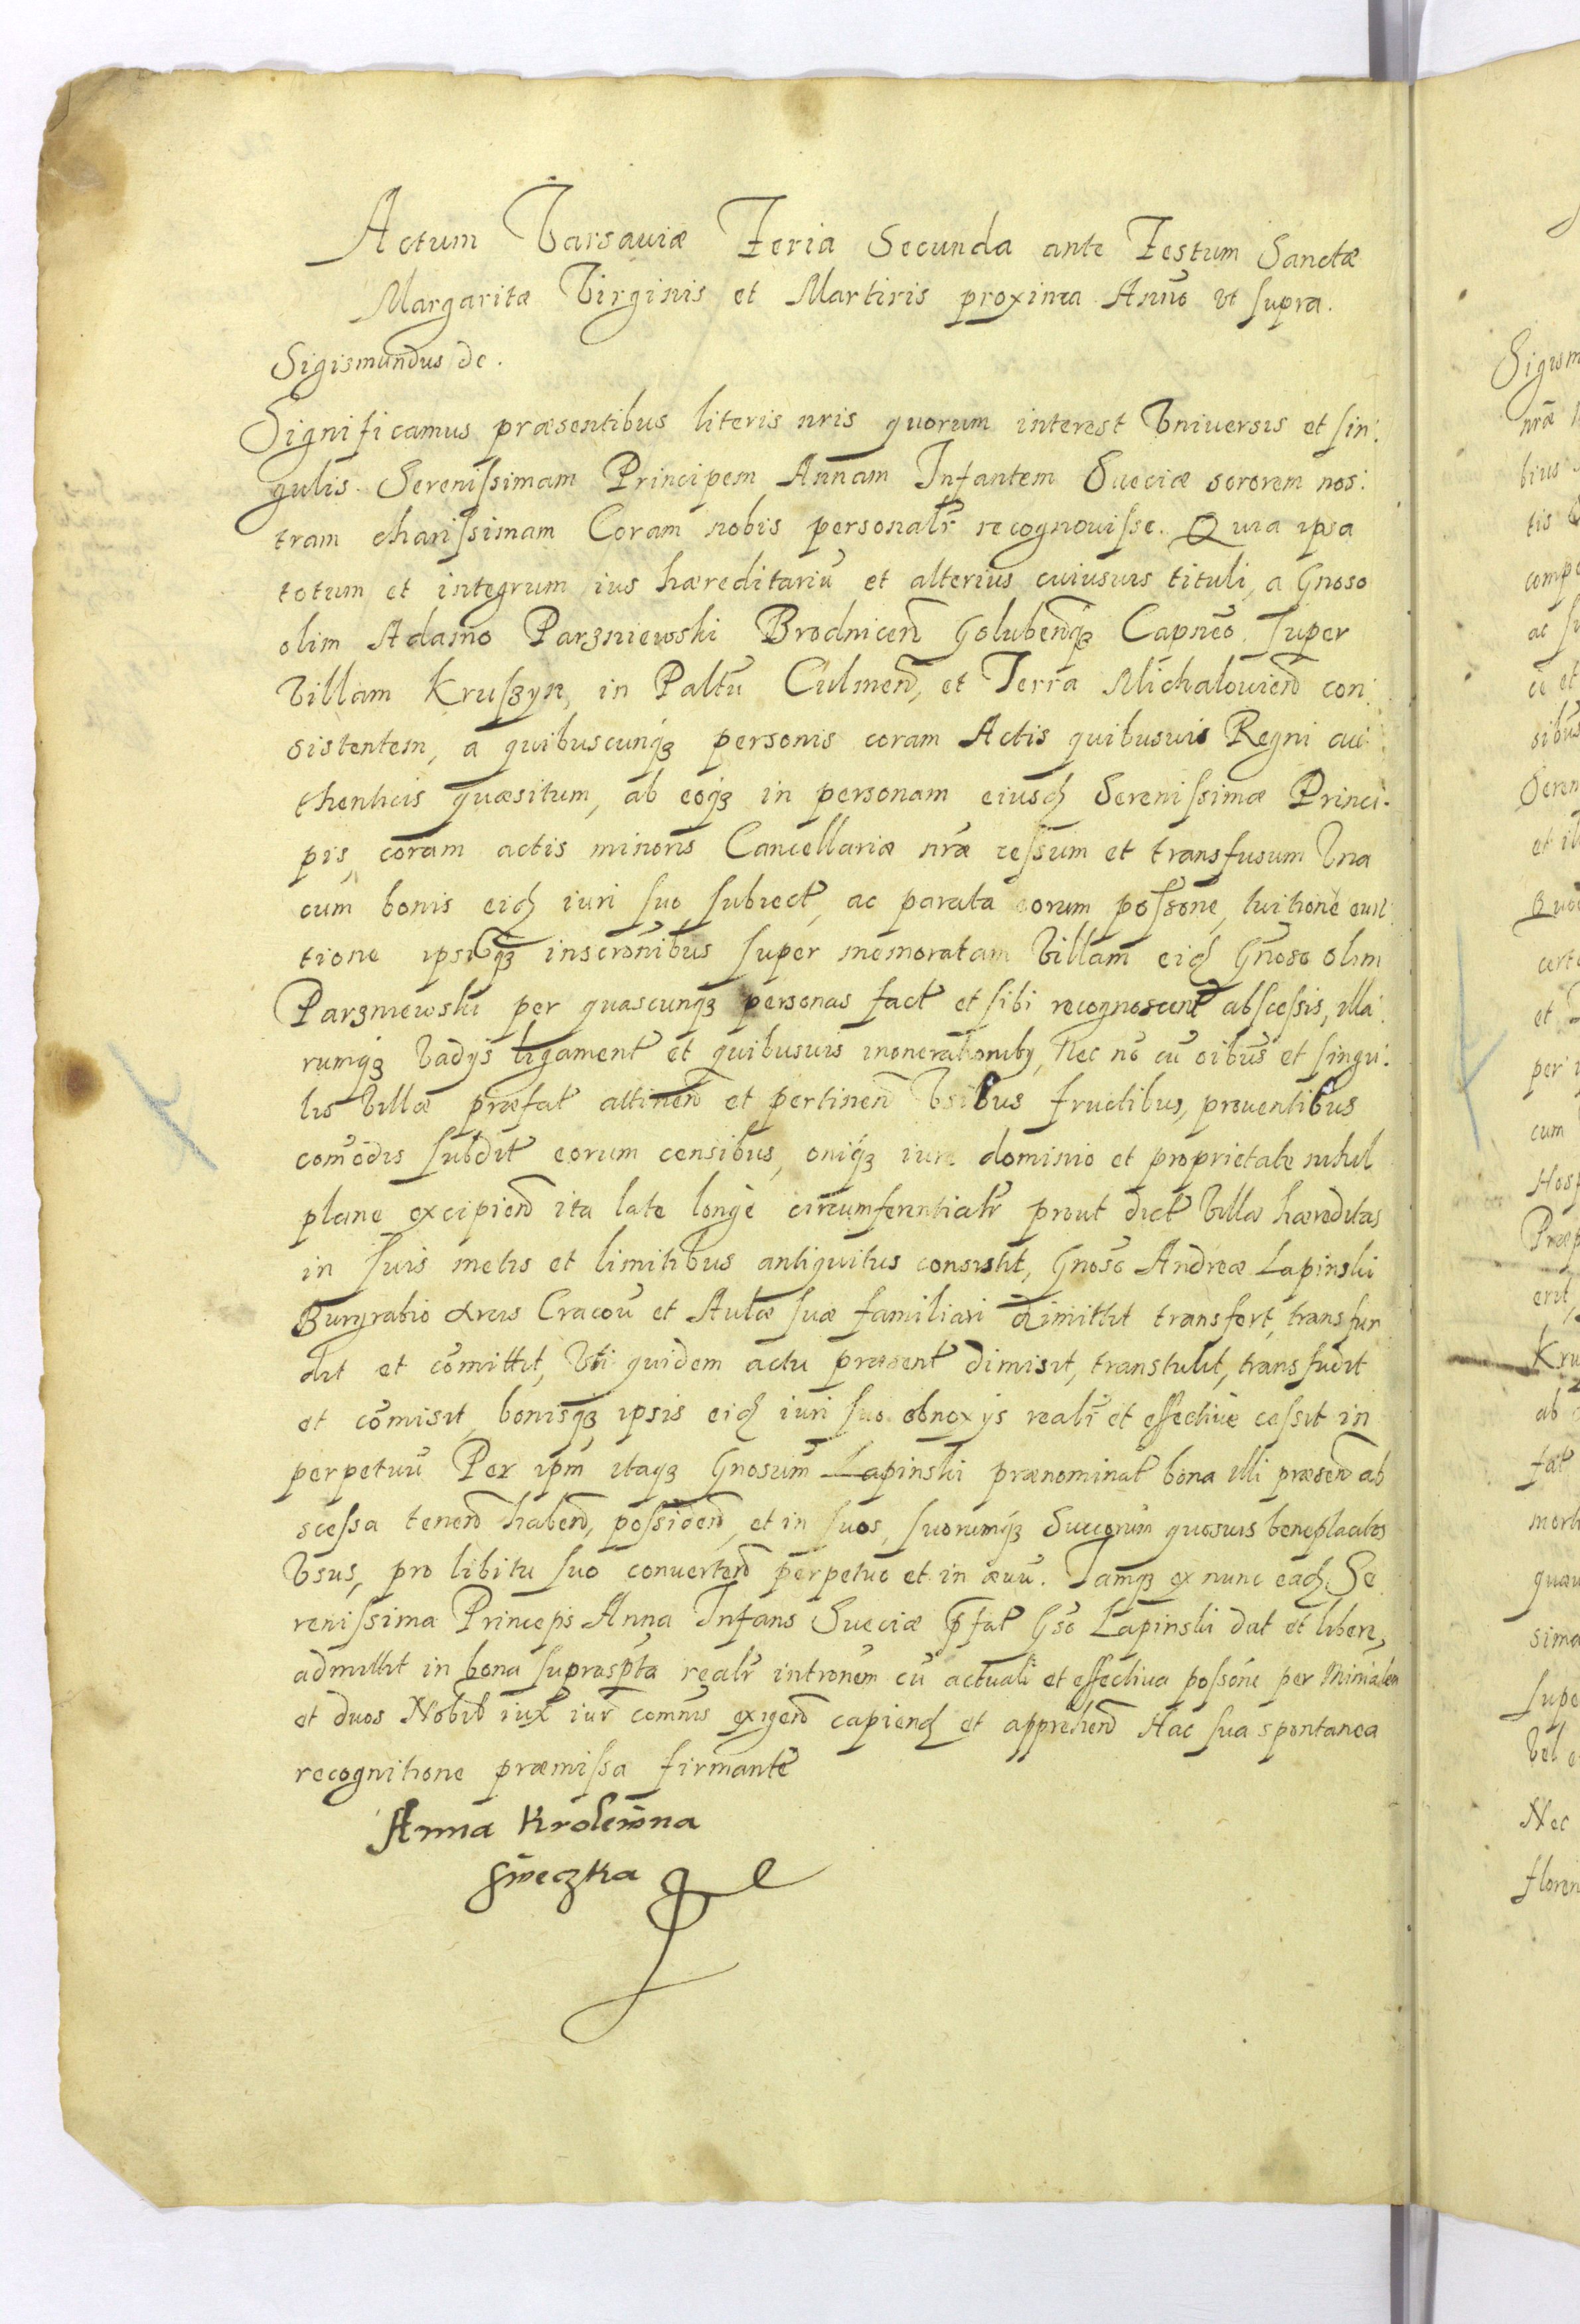 Actum Varsaviæ Feria Secunda ante Festum Sanctæ
Margaritæ Virginis et Martiris proxima Anno vt supra.
Sigismundus dc.
Significamus præsentibus literis nris quorum interest Vniversis et sin:
gulis. Serenissimam Principem Annam Infantem Sueciæ sororem nos:
tram charissimam Coram nobis personalr recognouisse. Quia ipsa
totum et integrum ius hæreditariũ et alterius cuiusuis tituli, a Gnoso
olim Adamo Parzniewski Brodnicen Golubenqȝ Capneo, Super
Villam Kruszyn, in Paltũ Culmen, et Terra Michalouien con:
sistentem, a quibuscunqȝ personis coram Actis quibusuis Regni au:
thenticis quæsitum, ab eoqȝ in personam eiusd Serenissimæ Princi:
pis, coram actis minoris Cancellariæ nræ cessum et transfusum Vna
cum bonis eid iuri suo subiect, ac parata eorum possone, tuitione euic
tione ipsisqȝ inscronibus super memoratam Villam eid Gnoso olim
Parzniewski per quascunqȝ personas fact et sibi recognoscent abscessis, illa:
rumqȝ Vadijs ligament et quibusuis inonerationiby, Nec nõ cũ oibus et singu:
lis Villæ præfat attinen et pertinen Vsibus fructibus, prouentibus
comodis subdit eorum censibus, oniqȝ iure dominio et proprietate nihil
plane excipien ita late longè circumferentialr prout dict Villæ hæreditas
in suis metis et limitibus antiquitus consistit, Gnoso Andreæ Lapinski
Burgrabio Arcis Cracou et Aulæ suæ familiari dimittit transfert, transfun
dit et comittit, Vti quidem actu præsent dimisit, transtulit, transfudit
et comisit, bonisqȝ ipsis eid iuri suo obnoxijs realr et effectiue cessit in
perpetuũ Per ipm itaqȝ Gnosum Lapinski prænominat bona illi præsen ab
scessa tenen haben, possiden, et in suos, suorumqȝ Succorum quosuis beneplacitos
Vsus, pro libitu suo conuerten perpetuo et in æuũ. Iamqȝ ex nunc ead Se
renissima Princeps Anna Infans Sueciæ pfat Gso Lapinski dat et libere,
admittit in bona suprasptta realr intronem cũ actuali et effectiua possone per Ministialem
et duos Nobil iuxt iur comunis exigen capiend et apprehen Hac sua spontanea
recognitione præmissa firmante
Anna Krolewna
sweczka